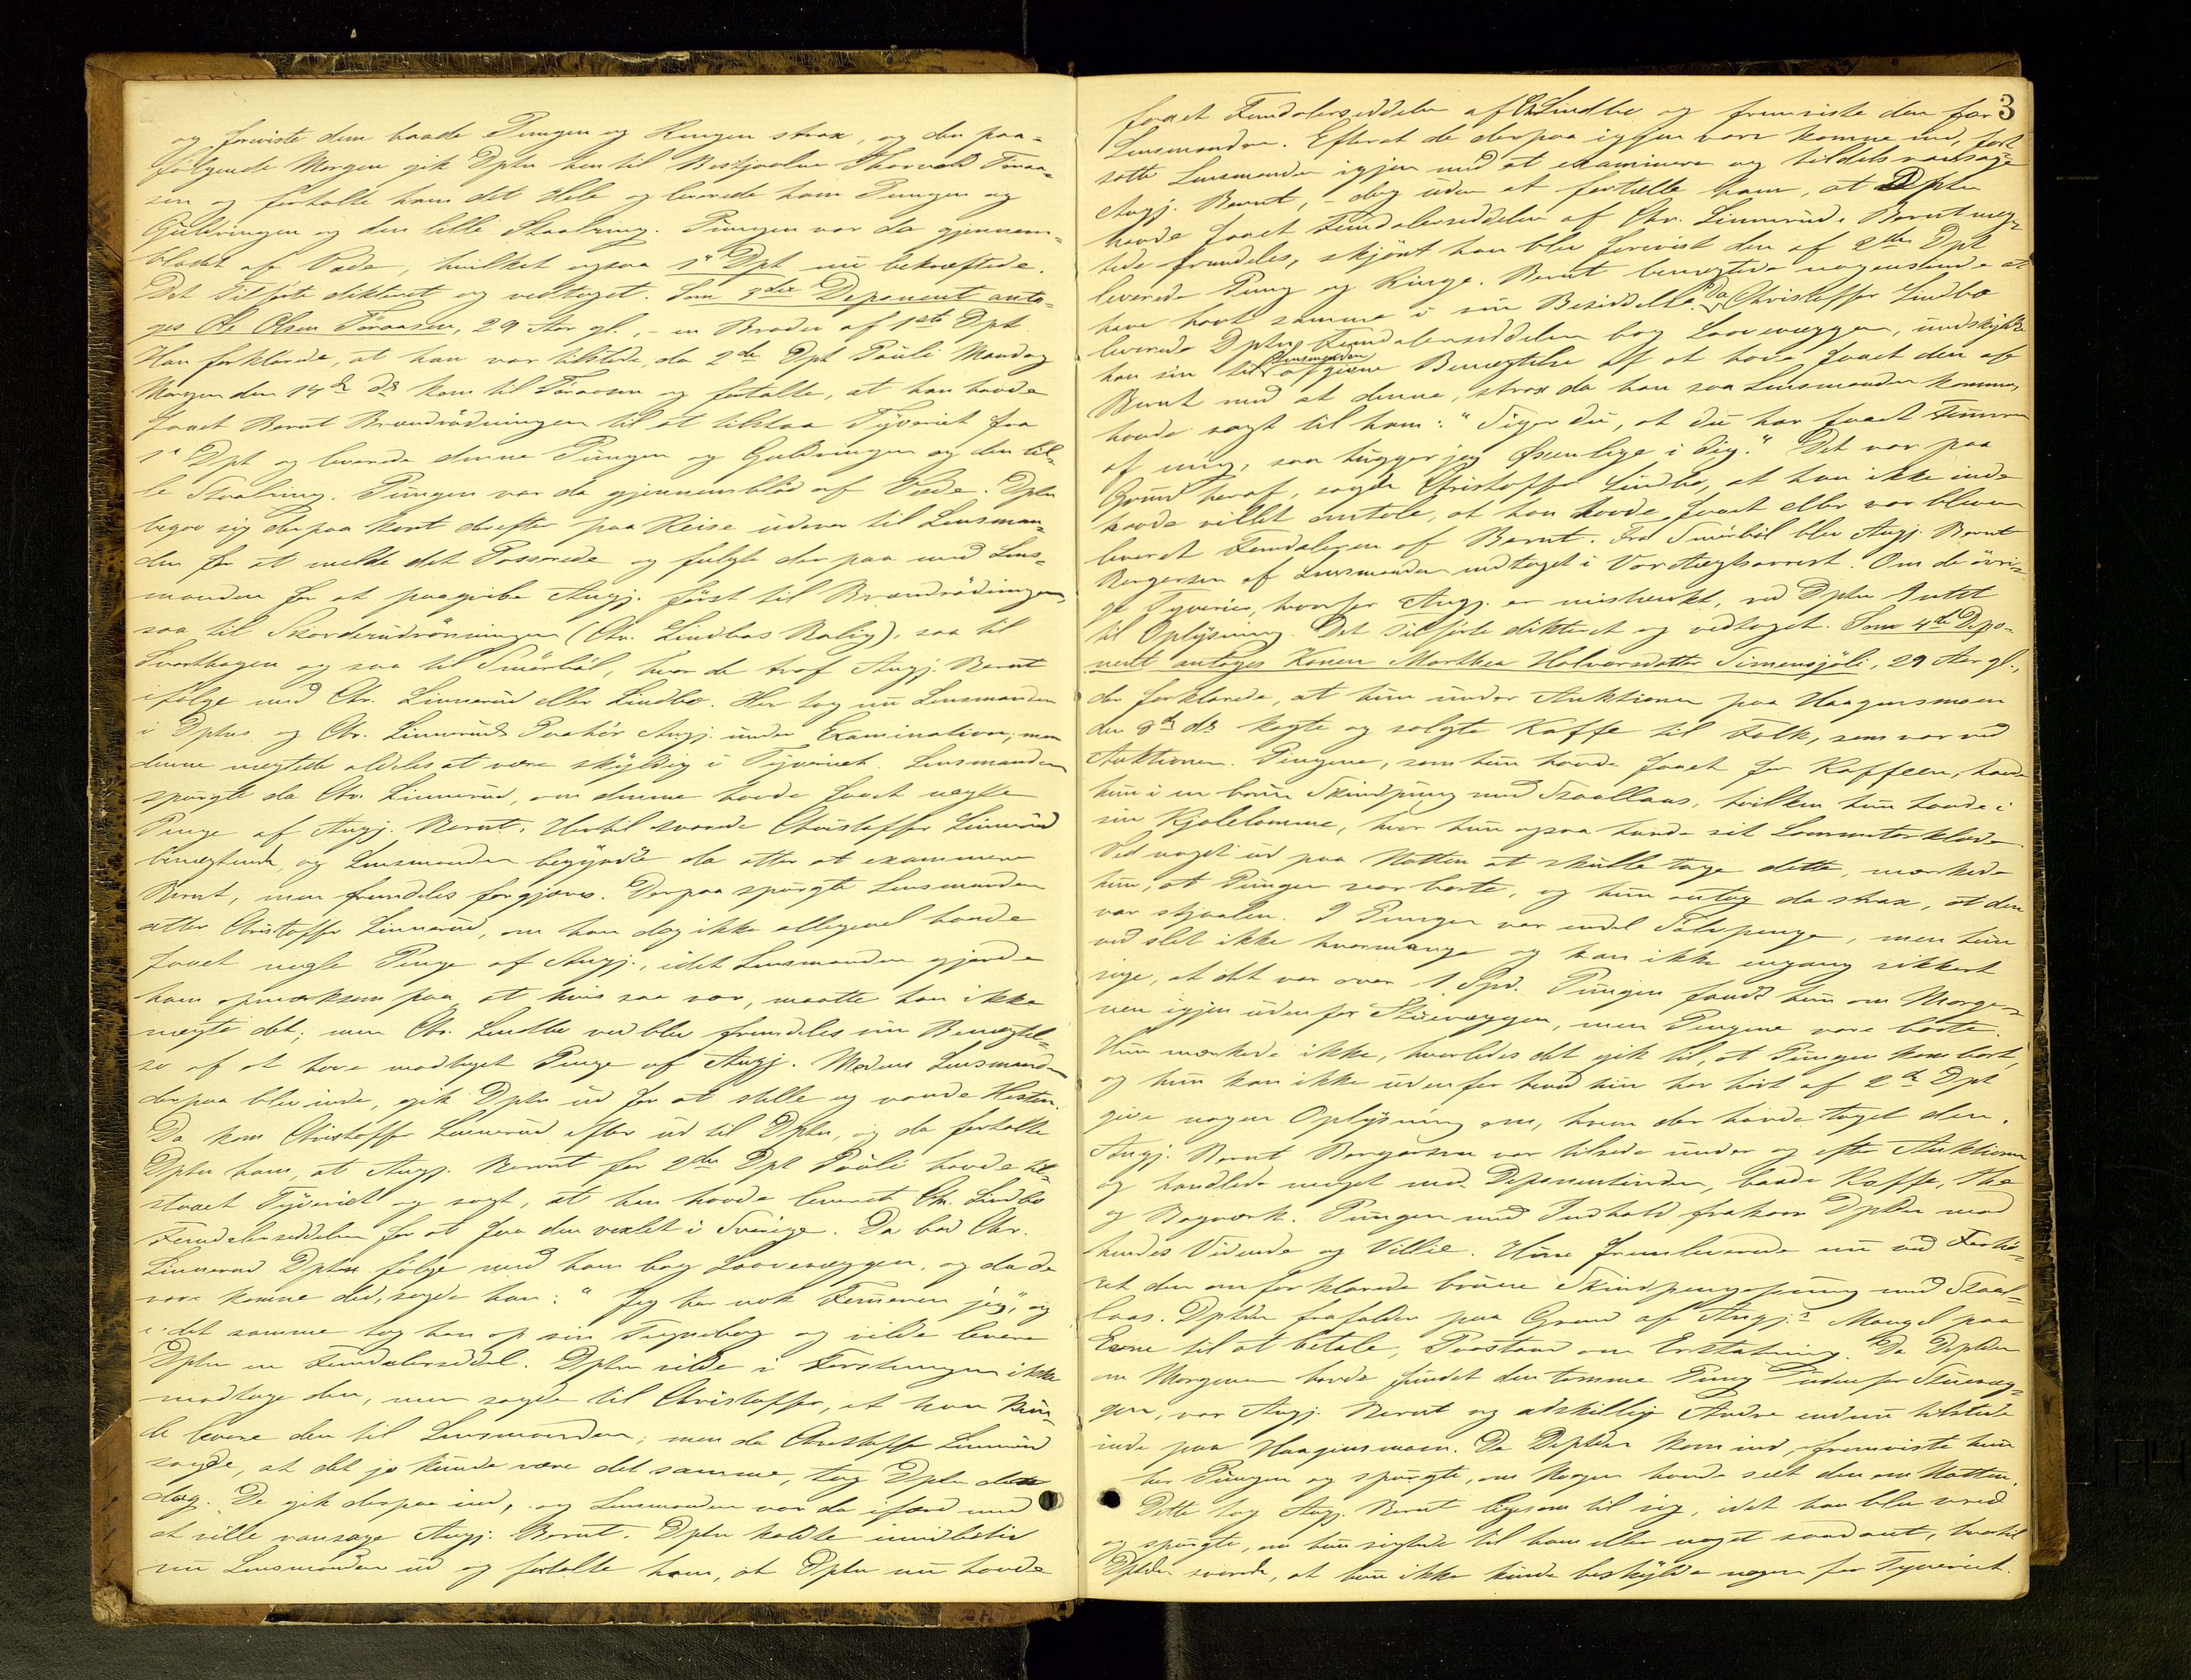 og foreviste dem baade Pungen og Ringen strax, og den paa-
følgende Morgen gik Dptn hen til Bestjaalne Thorvald Foraa-
sen og fortalte ham det Hele og leverede ham Pungen og
Guldringen og den lille Staalring. Pungen var da gjennem-
blødet af Væde, hvilket ogsaa 1ste Dpt nu bekræftede.
Det Tilførte dikteret og vedtaget. Som 3die Deponent anta-
ges Ole Olsen Foraasen, 29 Aar gl., - en Broder af 1ste Dpt.
Han forklarede, at han var tilstede, da 2den Dpt Pauli Mandag
Morgen den 14de ds kom til Foraasen og fortalte, at han havde
faaet Bernt Brændrødningen til at tilstaa Tyveriet fra
1ste Dpt og leverede denne Pungen og Guldringen og den lil-
le Staalring. Pungen var da gjennemblød af Væde. Dptn
begav sig derpaa kort derefter paa Reise udover til Lensman-
den for at melde det Passerede og fulgte der paa med Lens-
manden for at paagribe Angj. først til Brændrødningen,
saa til Skorderudrønningen (Chr. Lindbos Bolig), saa til
Svarthagen og saa til Smørhøl, hvor de traf Angj. Bernt
i følge med Chr. Linnerud eller Lindbo. Her tog nu Lensmanden
i Dptns og Chr. Linneruds Paahør Angj. under Examination, men
denne nægtede aldeles at være skyldig i Tyveriet. Lensmanden
spurgte da Chr. Linnerud, om denne havde faaet nogle
Penge af Angj. Bernt. Hertil svarede Christoffer Linnerud
benægtende, og Lensmanden begyndte da atter at examinere
Bernt, men fremdeles forgjæves. Derpaa spurgte Lensmanden
atter Christoffer Linnerud, om han dog ikke allegevel havde
faaet nogle Penge af Angj., idet Lensmanden gjorde
ham opmærksom paa, at hvis saa var, maatte han ikke
nægte det; men Chr. Lindbo ved blev fremdeles sin Benægtel-
se af at have modtaget Penge af Angj. Medens Lensmanden
derpaa blev inde, gik Dptn ud for at stelle og vande Hesten.
Da kom Christoffer Linnerud efter ud til Dptn, og da fortalte
Dptn ham, at Angj. Bernt for 2den Dpt Pauli havde til-
staaet Tyveriet og sagt, at han havde leveret Chr. Lindbo
Femdalerseddelen for at faa den vexlet i Sverige. Da bad Chr.
Linnerud Dptn følge med ham bag Laavevæggen, og da de
vare komne did, sagde han: "Jeg har nok Femmeren jeg", og
i det samme tog han op sin Tegnebog og vilde levere
Dptn en Femdalerseddel. Dptn vilde i Førstningen ikke
modtage den, men sagde til Christoffer, at han kun-
de levere den til Lensmanden; men da Christoffer Linnerud
sagde, at det jo kunde være det samme, tog Dptn den
dog. De gik derpaa ind, og Lensmanden var da ifærd med
at ville ransage Angj. Bernt. Dptn kaldte imidlertid
nu Lensmanden ud og fortalte ham, at Dptn nu havde
3
faaet Femdalerseddelen af Chr. Lindbo og fremviste den for
Lensmanden. Efterat de derpaa igjen vare komne ind, fort
satte Lensmanden igjen med at examinere og tildels ransage
Angj. Bernt, - dog uden at fortælle ham, at Dptn
havde faaet Femdalerseddelen af Chr. Linnerud. Bernt næg-
tede fremdeles, skjønt han blev forevist den af 2den Dpt
leverede Pung og Ringe. Bernt benægtede nogensinde at
have havt samme i sin Besiddelse. Da Christoffer Lindbo
leverede Dptn Femdalerseddelen bag Laavevæggen, undskyldte
han sin til Lensmanden afgivne Benægtelse af at have faaet den af
Bernt med at denne, strax da han saa Lensmanden komme,
havde sagt til ham: "Siger du, at du har faaet Femmeren
af mig, saa hugger jeg Øxen lige i dig." Det var paa
Grund heraf, sagde Christoffer Lindbo, at han ikke inde
havde villet omtale, at han havde faaet eller var bleven
leveret Femdaleren af Bernt. Fra Smørhøl blev Angj. Bernt
Bergersen af Lensmanden nedtaget i Varetægtsarrest. Om de øvri-
ge Tyverier, hvorfor Angj. er mistænkt, ved Dptn Intet
til Oplysning. Det Tilførte dikteret og vedtaget. Som 4de Depo-
nent antages Konen Marthea Halvorsdatter Simensjøli, 29 Aar gl.,
der forklarede, at hun under Auktionen paa Haagensmoen
den 8de ds kogte og solgte Kaffe til Folk, som var ved
Auktionen. Pengene, som hun havde faaet for Kaffeen, havde
hun i en brun Skindpung med Staallaas, hvilken hun havde i
sin Kjolelomme, hvor hun ogsaa havde sit Lommetørklæde.
Ved noget ud paa Natten at skulle tage dette, mærkede
hun, at Pungen var borte, og hun antog da strax, at den
var stjaalen. I Pungen var endel Sølvpenge, men hun
ved slet ikke hvormange og kan ikke engang sikkert
sige, at det var over 1 Spd. Pungen fandt hun om Morge-
nen igjen udenfor Stuevæggen, men Pengene vare borte.
Hun mærkede ikke, hvorledes det gik til, at Pungen kom bort,
og hun kan ikke udenfor hvad hun har hørt af 2den Dpt
give nogen Oplysning om, hvem der havde taget den.
Angj. Bernt Bergersen var tilstede under og efter Auktionen
og handlede meget med Deponentinden, baade Kaffe, The
og Bagværk. Pungen med Indhold frakom Dptden mod
hendes Vidende og Villie. Hun fremleverede nu ved Forhø-
ret den omforklarede brune Skindpengepung med Staal-
laas. Dptden frafalder paa Grund af Angj.s Mangel paa
Evne til at betale, Paastand om Erstatning. Da Dptden
om Morgenen havde fundet den tomme Pung udenfor Stuevæg-
gen, var Angj. Bernt og adskillige Andre endnu tilstede
inde paa Haagensmoen. Da Dptden kom ind, fremviste hun
her Pungen og spurgte, om Nogen havde seet den om Natten.
Dette tog Angj. Bernt ligesom til sig, idet han blev vred
og spurgte, om hun sigtede til ham eller noget saadant, hvortil
Dptden svarede, at hun ikke kunde beskylde nogen for Tyveriet.